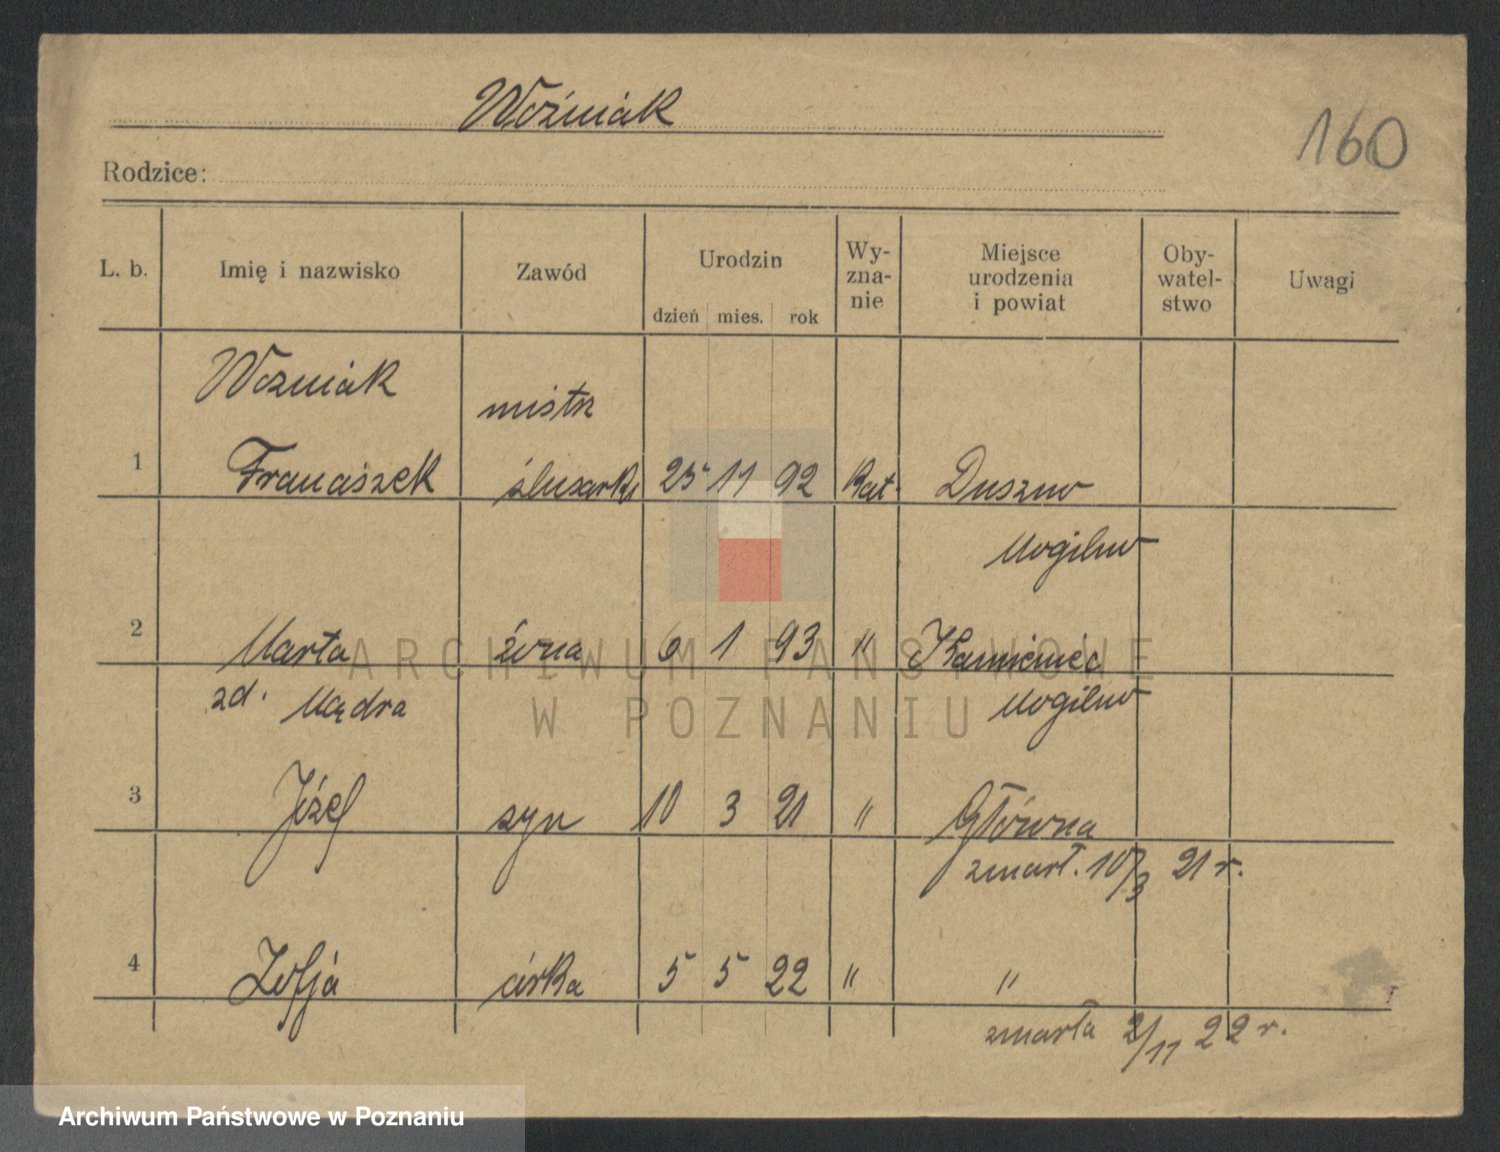 Woźniak
160
Rodzice:
L. b. Imię i nazwisko Zawód Urodzin dzień mies. rok Wy-zna-nie Miejsce urodzenia i powiat Oby-watel-stwo Uwagi
Wozniak mistrz
1 Franciszek ślusarski 25 11 92 Kat. Duszno
Mogilno
2 Marta żona 6 1 93 " Kamieniec
zd. Mądra Mogilno
3 Józef syn 10 3 21 " Główna
zmarł. 10/3 21 r.
4 Zofja córka 5 5 22 " "
zmarła 2/11 22 r.
ARCHIWUM PAŃSTWOWE
W POZNANIU
Archiwum Państwowe w Poznaniu